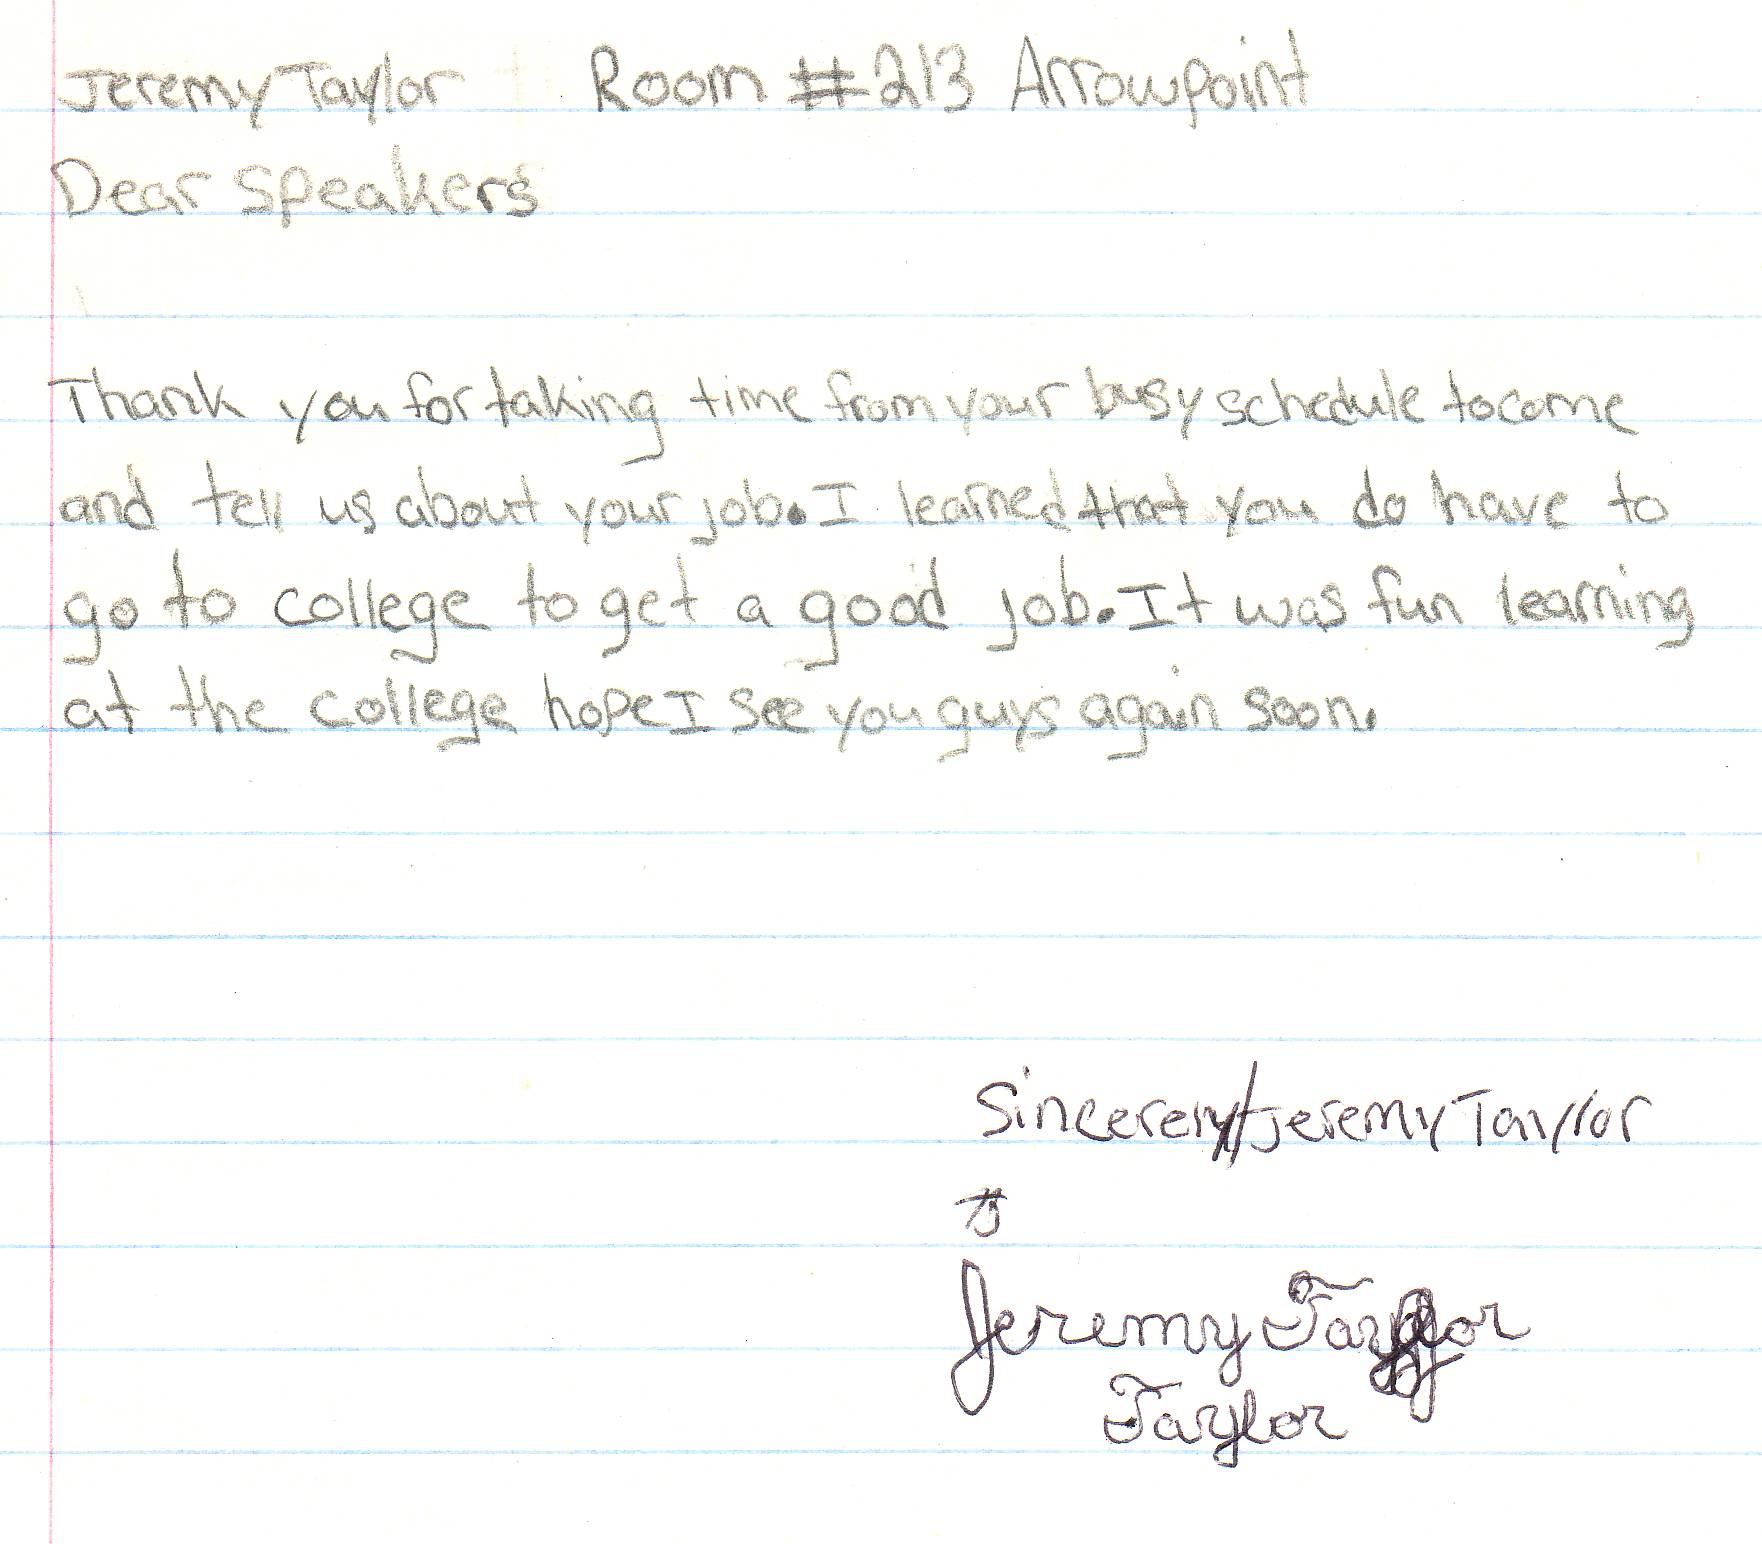 Jeremy Taylor Room #213 Arrowpoint
Dear Speakers
Thank you for taking time from your busy schedule to come
and tell us about your job. I learned that you do have to
go to college to get a good job. It was fun learning
at the college hope I see you guys again soon.
Sincerely, Jeremy Taylor
Jeremy Taylor
Taylor